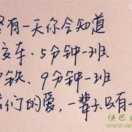 终有一天你会知道
公交车.5分钟一班
地铁.9分钟一班
我们的爱.一辈子只有一